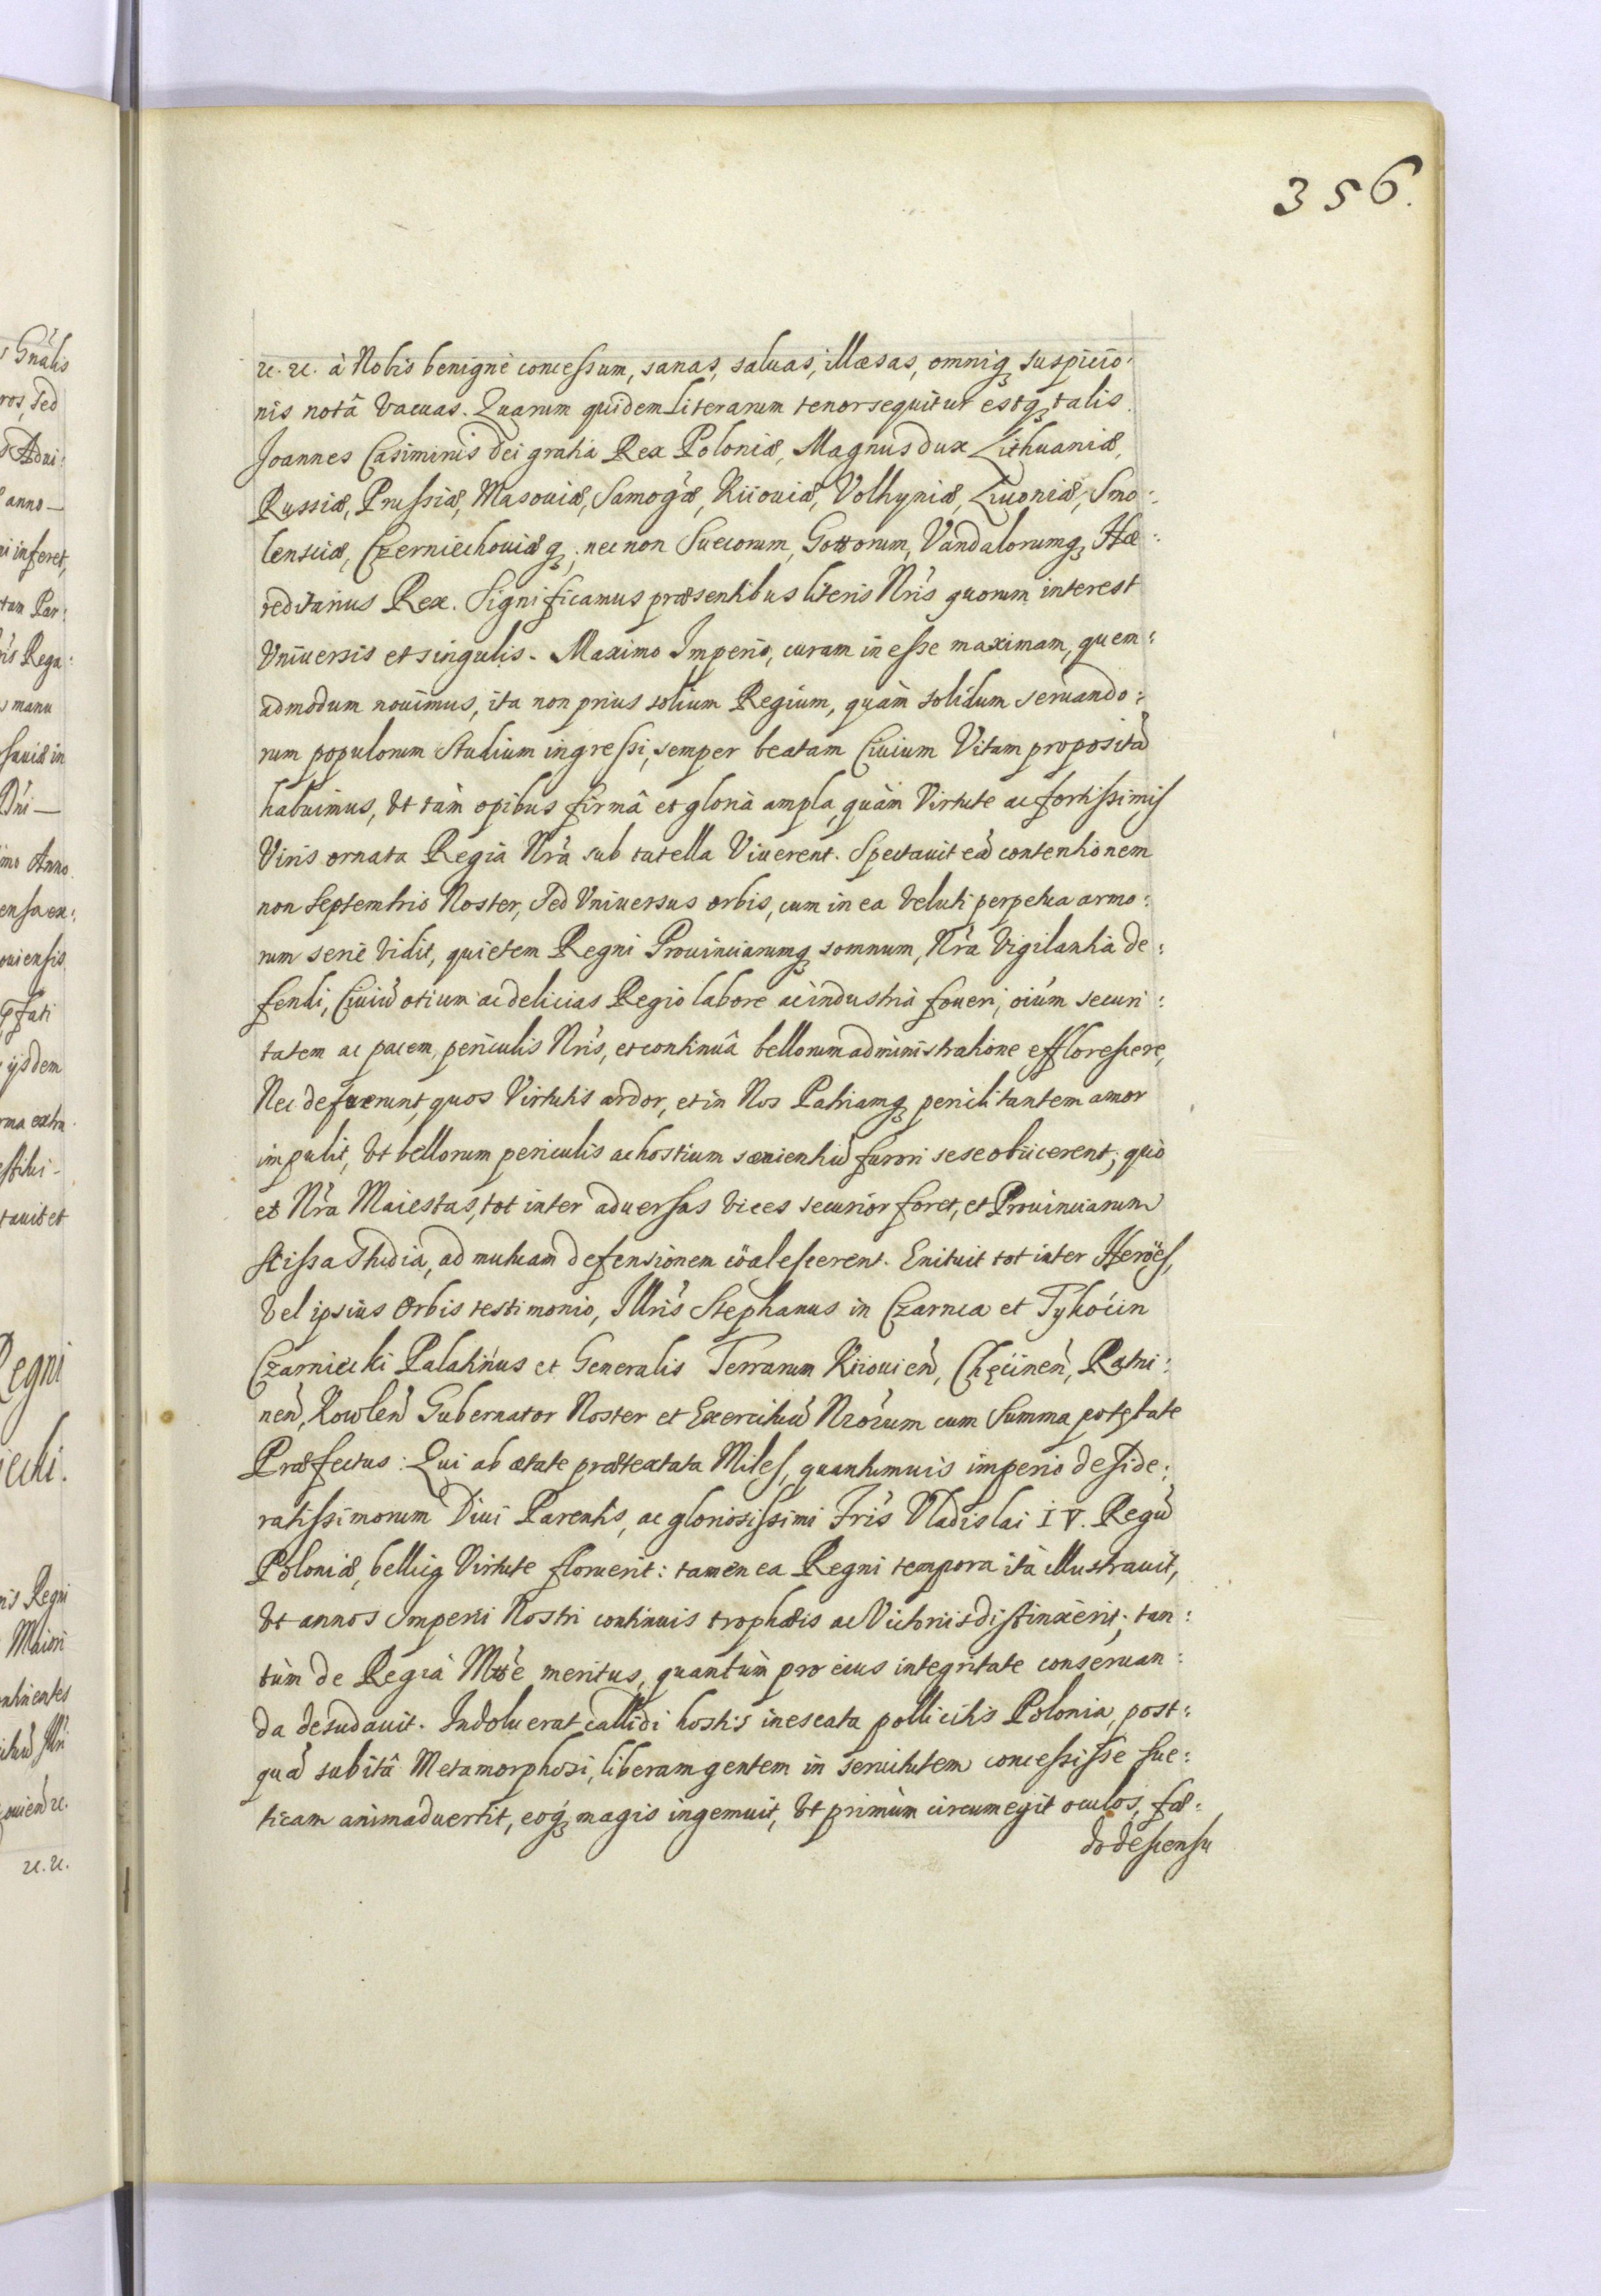 356.
s Gnãlis
ros, sed
Adui:
anno —
ni inferet,
tam Par:
ris Rega:
s manu
in
Dni —
imo Anno
ensa ex:
ouiensis
pfati
ijsdem
rma extra
estitui-
tauit et
Regni
iecki.
nis Regni
Maiori
ntinentes
ouien̄ ꝛc.
ꝛc. ꝛc.
ꝛc. ꝛc. à Nobis benignè concessum, sanas, saluas, illæsas, omniqꝫ suspicio:
nis notâ vacuas. Quarum quidem Literarum tenor sequitur estqꝫ talis.
Joannes Casimirus Dei gratia Rex Poloniæ, Magnus Dux Lithuaniæ,
Russiæ, Prussiæ, Masouiæ, Samogæ, Kijouiæ, Volhyniæ, Liuoniæ, Smo:
lensciæ, Czerniechouiæqꝫ; nec non Suecorum, Gottorum, Vandalorumqꝫ Hæ:
reditarius Rex. Significamus præsentibus literis Nris quorum interest
Vniuersis et singulis. Maximo Imperio, curam inesse maximam, quem:
admodum nouimus, ita non prius solium Regium, quàm solidum seruando:
rum populorum Studium ingressi, semper beatam Ciuium Vitam proposita᷉
habuimus, vt tàm opibus firmâ et gloriâ ampla, quàm Virtute ac fortissimis
Viris ornata Regia Nra sub tutella Viuerent. Spectauit ea᷉ contentionem
non Septemtrio Noster, sed Vniuersus orbis, cum in ea veluti perpetua armo:
rum serie vidit, quietem Regni Prouinciarumqꝫ somnum, Nra Vigilantia de:
fendi, Ciuiu᷉ otium ac delicias Regio labore ac industriâ foueri, oium securi:
tatem ac pacem, periculis Nris, et continuâ bellorum administratione efflorescere,
Nec defuerunt, quos Virtutis ardor, et in Nos Patriamqꝫ periclitantem amor
impulit, vt bellorum periculis ac hostium sæuientiu᷉ furori sese obiicerent; quò
et Nra Maiestas, tot inter aduersas vices securior foret, et Prouinciarum
scissa studia, ad mutuam defensionem cöalescerent. Enituit tot inter Heröes,
vel ipsius Orbis testimonio, Illris Stephanus in Czarnca et Tykocin
Czarniecki Palatinus et Generalis Terrarum Kijouien̄, Chęcinen̄, Ratni:
nen̄, Kowlen̄ Gubernator Noster et Exercituu᷉ Nrorum cum Summa potestate
Præfectus: Qui ab ætate prætextata Miles, quantumuis imperio deside:
ratissimorum Diui Parentis, ac gloriosissimi Fris Vladislai IV. Regu᷉
Poloniæ, bellicę Virtute floruerit: tamen ea Regni tempora ità illustrauit,
vt annos Imperii Nostri continuis trophæis ac Victoriis distinxerit, tan:
tùm de Regia Mtte meritus, quantùm pro eius integritate conseruan:
da desudauit. Indoluerat callidi hostis inescata pollicitis Polonia, post:
qua᷉ subitâ Metamorphosi, liberam gentem in seruitutem concessisse Sue:
ticam animaduertit, eoqꝫ magis ingemuit, vt primùm circumegit oculos, fœ:
do descensu